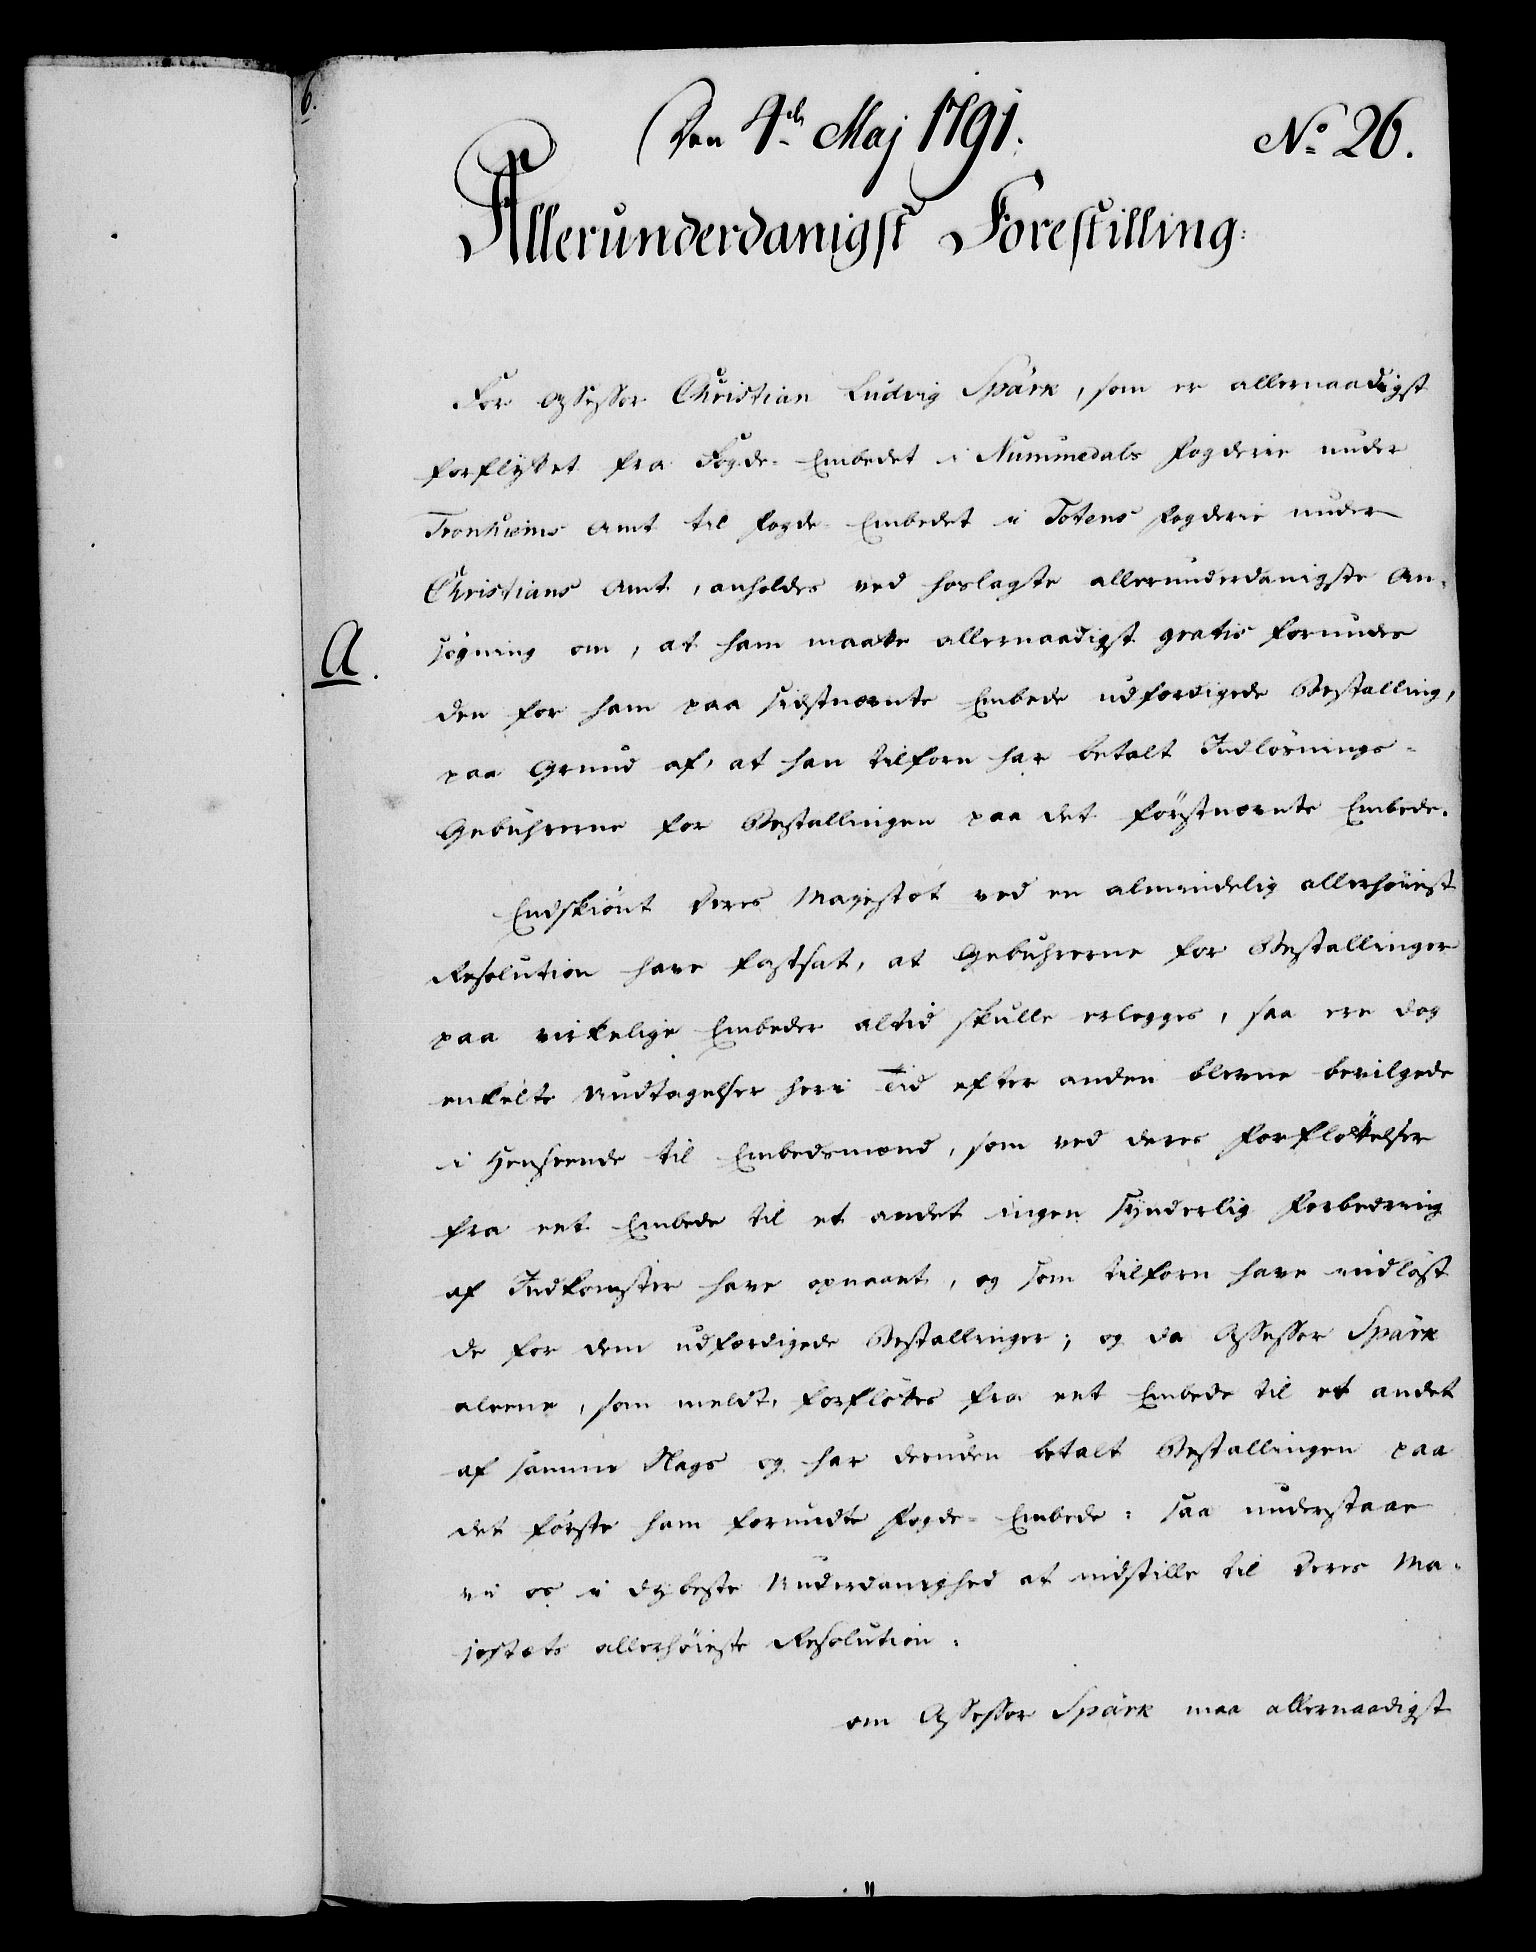 6.
Den 4de Maj 1791.
No 26.
Allerunderdanigst Forestilling:
For Assessor Christian Ludvig Spärk, som er allernaadigst
forflyttet fra Fogde-Embedet i Nummedals Fogderie under
Tronhiems Amt til Fogde-Embedet i Totens Fogderie under
Christians Amt, anholdes ved hoslagte allerunderdanigste An-
A.
søgning om, at ham maatte allernaadigst gratis forundes
den for ham paa sidstnævnte Embede udfærdigede Bestalling,
paa Grund af, at han tilforn har betalt Indløsnings-
Gebuhrerne for Bestallingen paa det förstnævnte Embede.
Endskiönt Deres Majestæt ved en almindelig allerhöiest
Resolution have fastsat, at Gebuhrerne for Bestallinger
paa virkelige Embeder altid skulle erlegges, saa ere dog
enkelte Undtagelser heri Tid efter anden blevne bevilgede
i Henseende til Embedsmænd, som ved deres Forflöttelser
fra eet Embede til et andet ingen synderlig Forbedring
af Indkomster have opnaaet, og som tilforn have indløst
de for dem udfærdigede Bestallinger; og da Assessor Spärk
aleene, som meldt, forflöttes fra eet Embede til et andet
af samme Slags og har desuden betalt Bestallingen paa
det förste ham forundte Fogde-Embede: saa understaae
vi os i dybeste Underdanighed at indstille til Deres Ma-
jestæts allerhöieste Resolution:
om Assessor Spärk maa allernaadigst